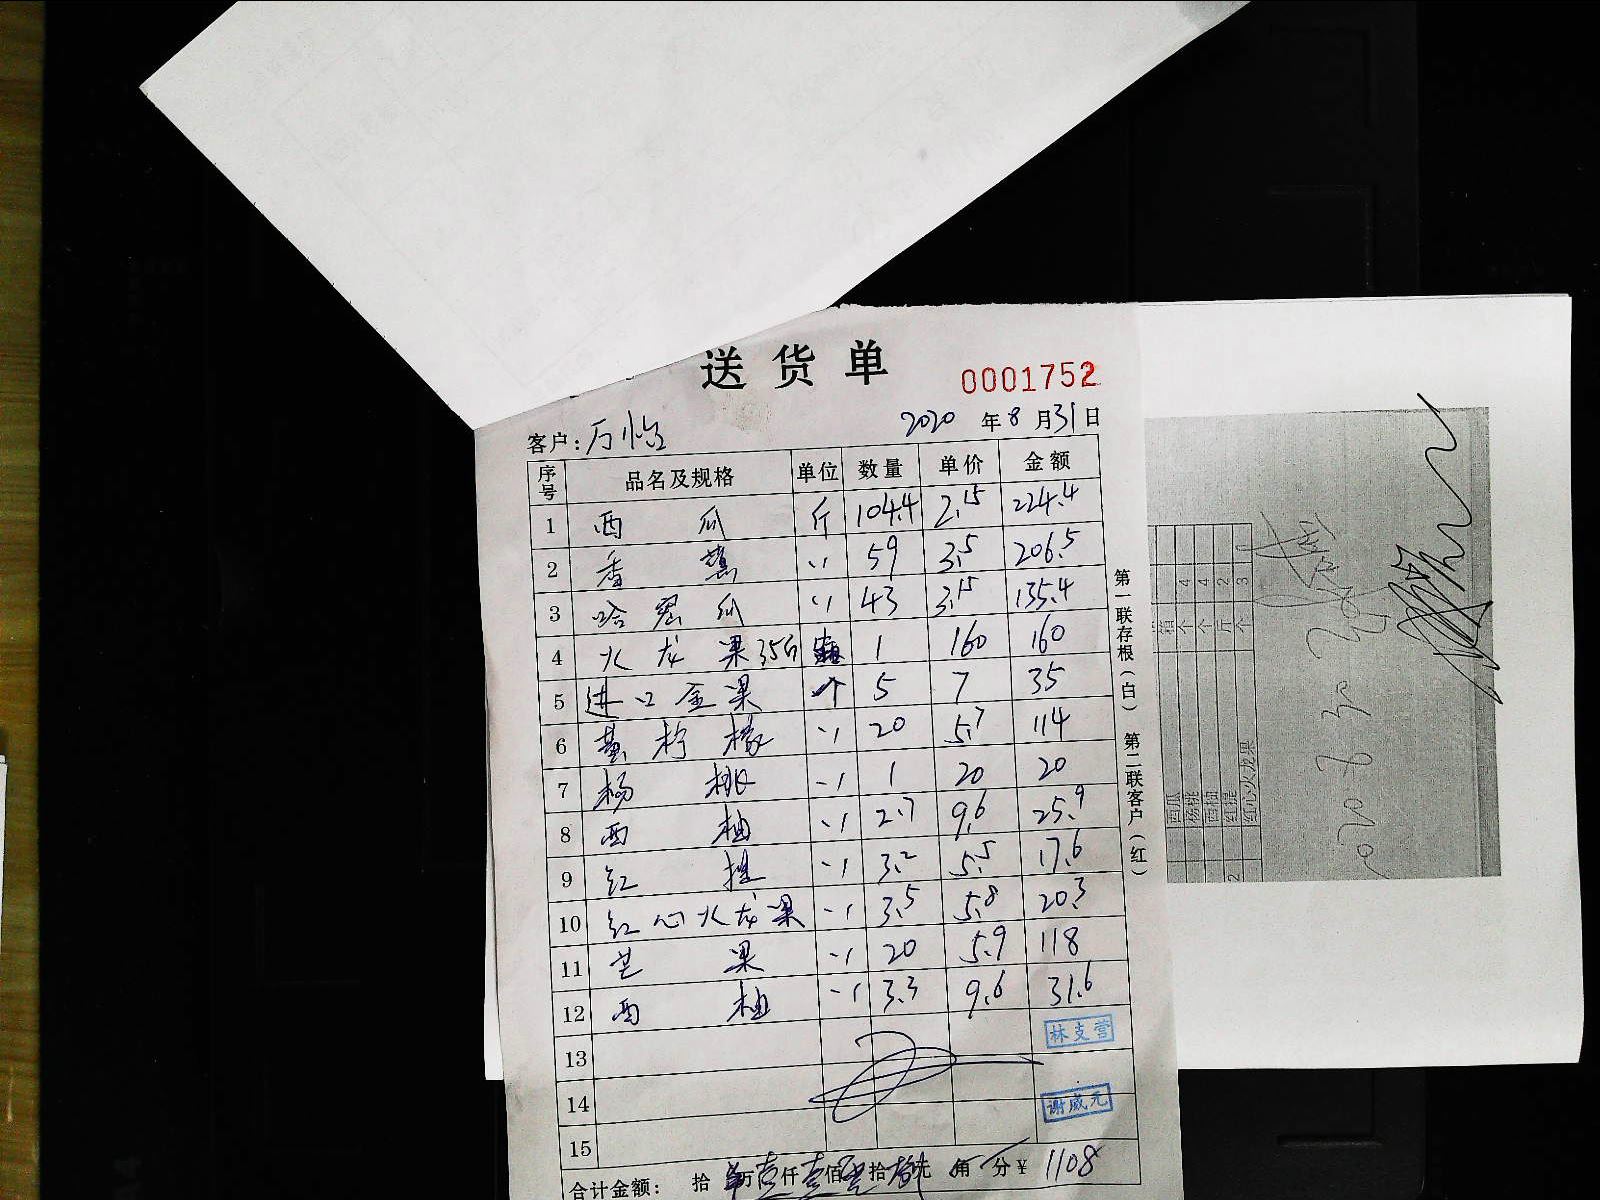 送货单
0001752
客户：万怡 2020 年 8 月 31 日
序号 品名及规格 单位 数量 单价 金额
1 西瓜 斤 104.4 2.15 224.4
2 香蕉 〃 59 3.5 206.5
3 哈密瓜 〃 43 3.15 135.4
4 火龙果35斤 1 160 160
5 进口金果 个 5 7 35
6 黄柠檬 〃 20 5.7 114
7 杨桃 〃 1 20 20
8 西柚 〃 2.7 9.6 25.9
9 红提 〃 3.2 5.5 17.6
10 红心火龙果 〃 3.5 5.8 20.3
11 芒果 〃 20 5.9 118
12 西柚 〃 3.3 9.6 31.6
13 林支营
14 谢威元
15
合计金额： 拾 万 仟 佰 拾 元 角 分 ¥ 1108
第一联存根（白） 第二联客户（红）
西瓜 箱
杨桃 个 4
西柚 个 4
红提 斤 2
2 红心火龙果 个 3